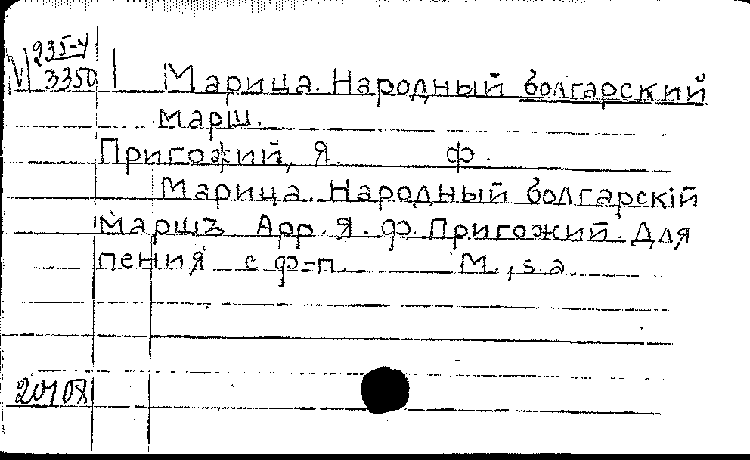 М 235-4
3350
Марица. Народный болгарский
марш.
Пригожий, Я. Ф.
Марица. Народный болгарскій
маршъ Арр. Я. Ф. Пригожий. Для
пения с ф-п. М., s.a.
20408